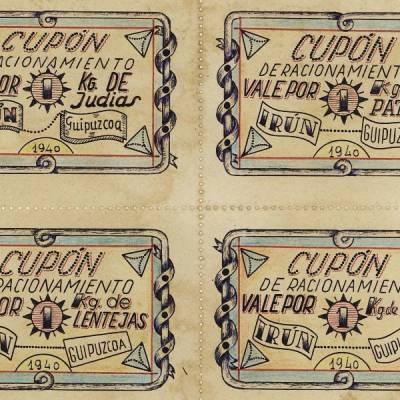 CUPÓN
RACIONAMIENTO
POR 1 Kg. DE
Judias
Guipuzcoa
1940
CUPÓN
DE RACIONAMIENTO
VALE POR 1 Kg
IRÚN
1940
CUPÓN
RACIONAMIENTO
POR 1 Kg. de
LENTEJAS
GUIPUZCOA
1940
CUPÓN
DE RACIONAMIENTO
VALE POR 1 Kg. de
IRÚN
1940